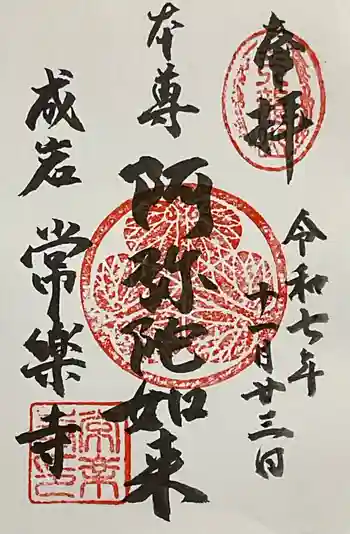 奉拝
令和七年
十一月廿三日
本尊
阿弥陀如来
成岩
常樂寺